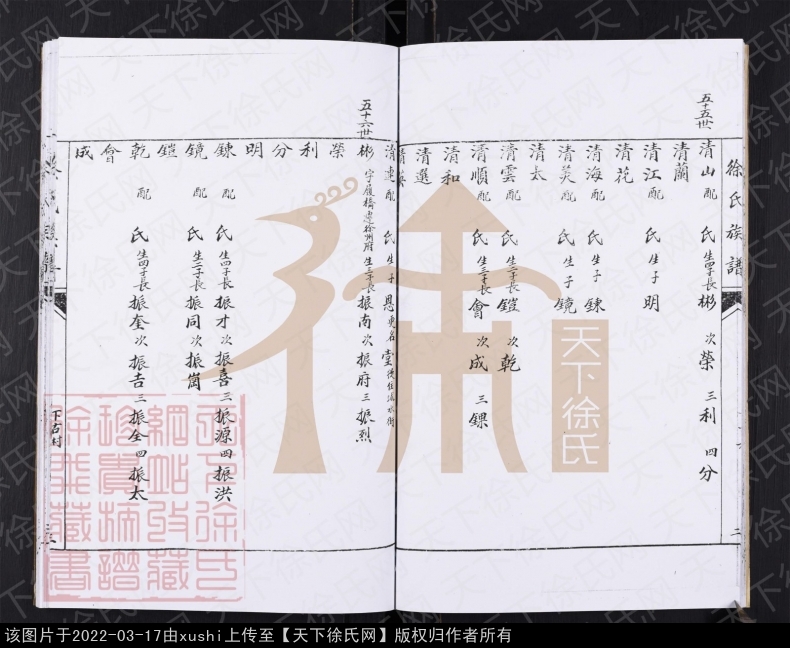 徐氏族譜
五十五世
清山 配 氏 生四子長 彬 次 榮 三 利 四 分
清蘭
清江 配 氏 生子 明
清花
清海 配 氏 生子 鍊
清美 配 氏 生子 鏡
清太
清雲 配 氏 生二子長 鎧 次 乾
清順 配 氏 生三子長 會 次 成 三 錁
清和
清選
二
五十六世
彬 字履橋遷徐州府 生三子長 振南 次 振府 三 振烈
榮
利
分
明
鍊 配 氏 生四子長 振才 次 振喜 三 振源 四 振洪
鏡 配 氏 生二子長 振同 次 振崗
鎧
乾 配 氏 生四子長 振奎 次 振吉 三 振全 四 振太
會
成
下古村
天下徐氏
天下徐氏网
该图片于2022-03-17由xushi上传至【天下徐氏网】版权归作者所有